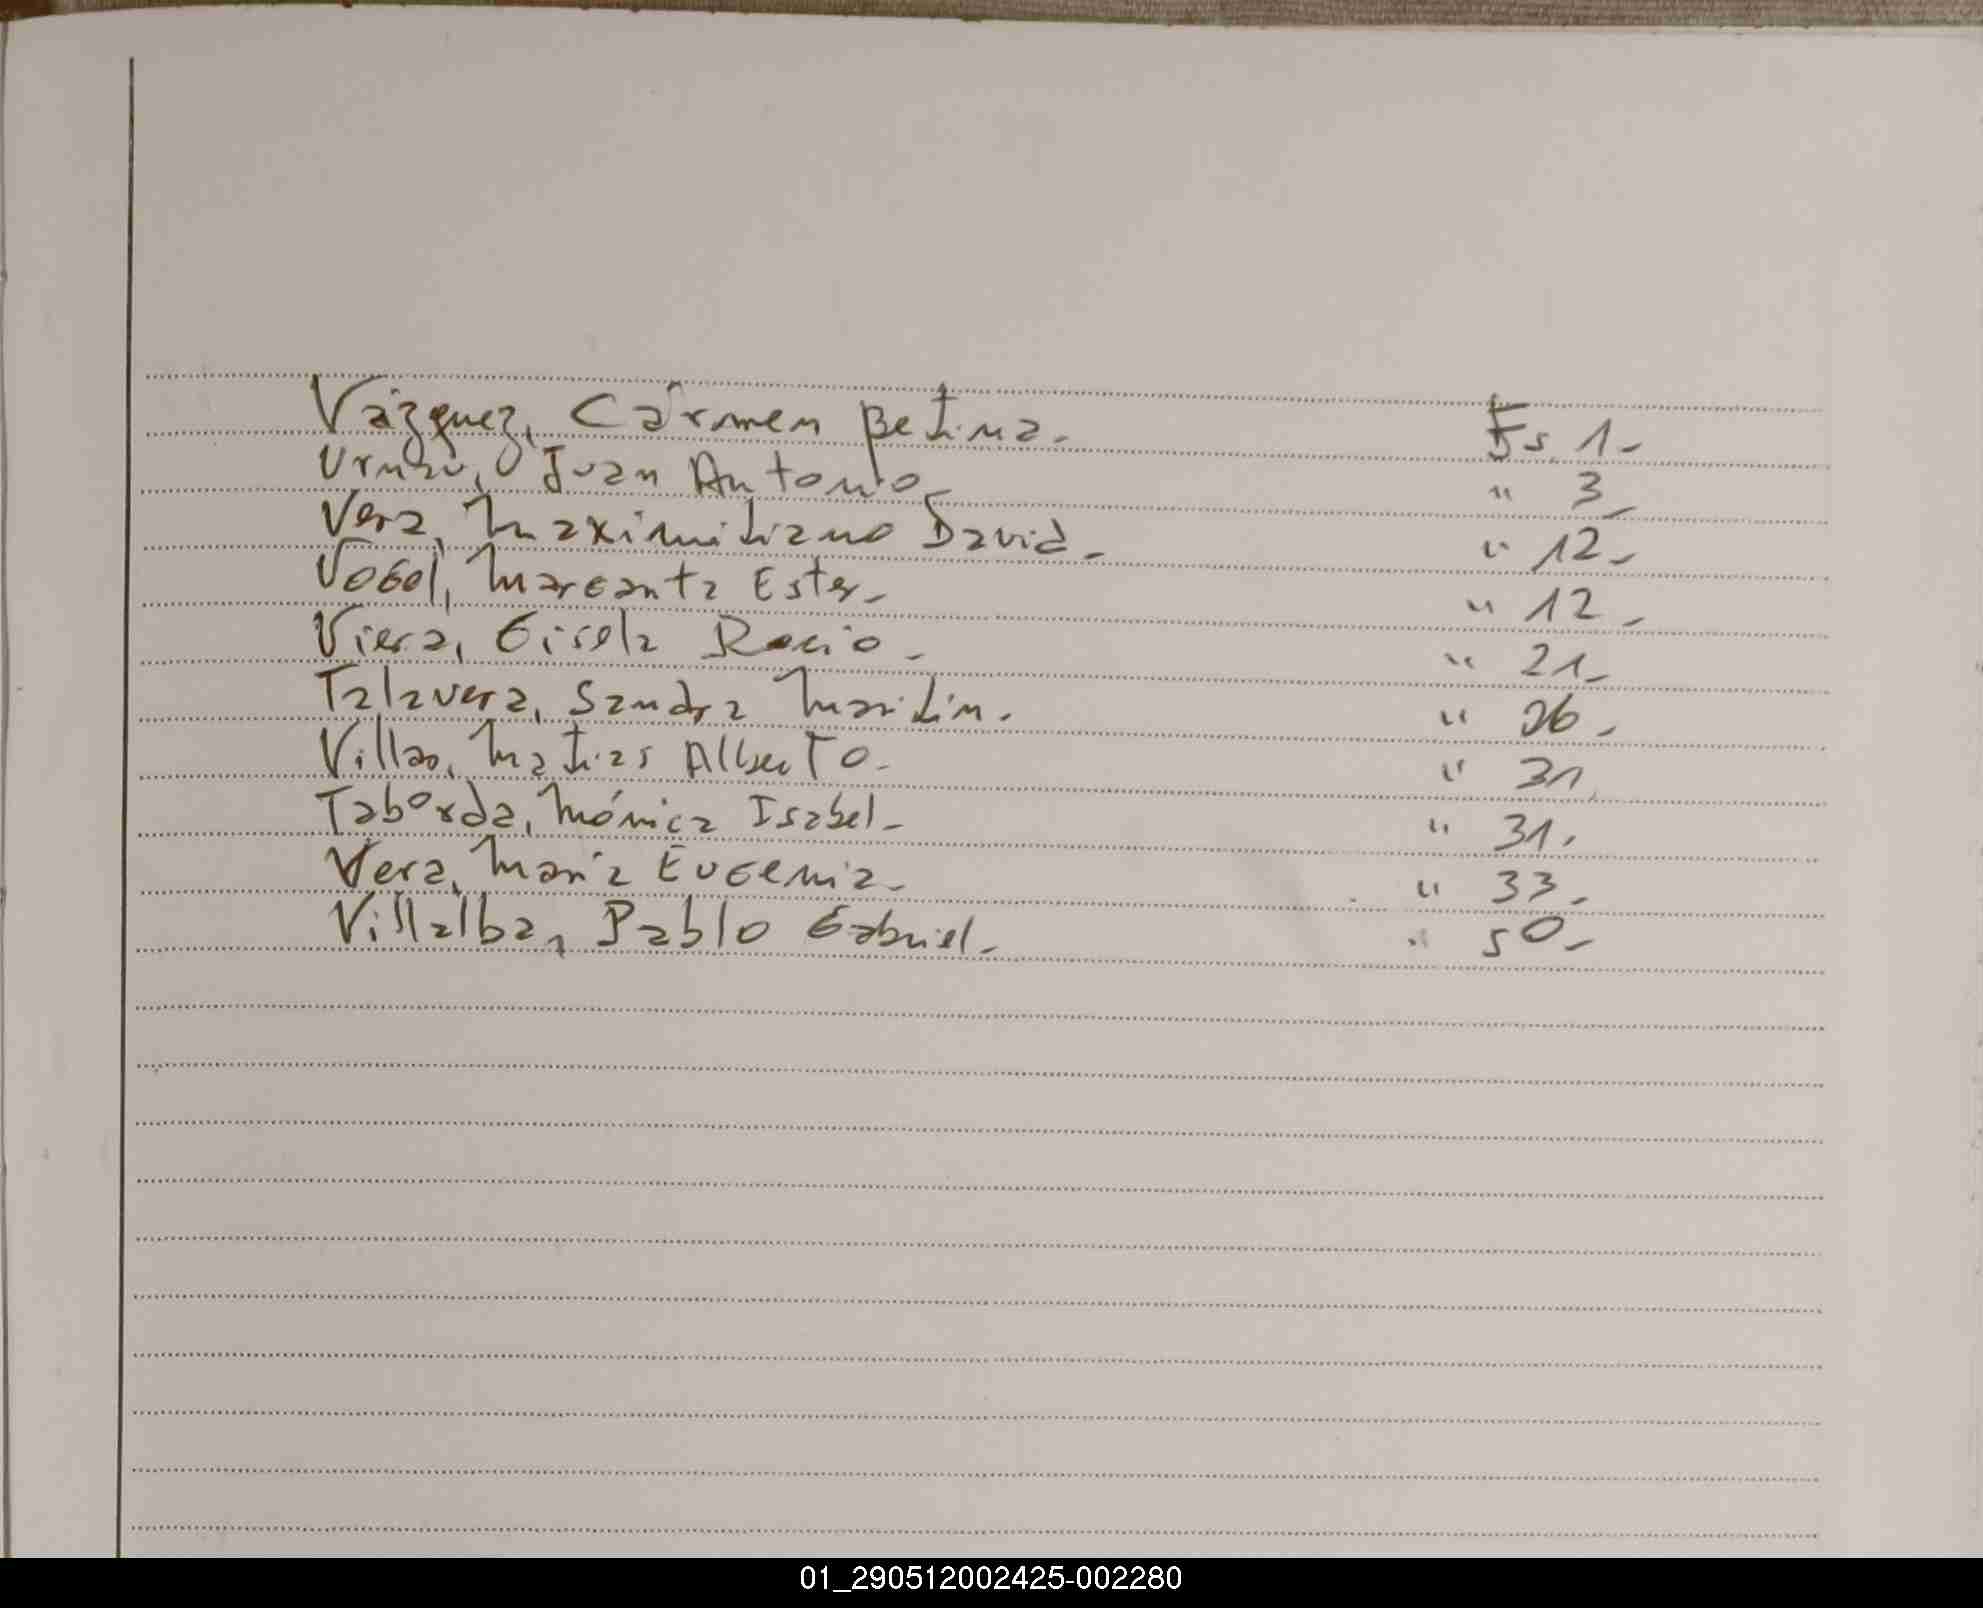 Vázquez, Carmen Betina. Fs. 1-
Juan Antonio- " 3-
Vera, Maximiliano David- " 12-
Vogel, Margarita Ester- " 12-
Viera, Gisela Rocio- " 21-
Talavera, Sandra Marilin. " 26-
Matias Alberto- " 31
Taborda, Mónica Isabel- " 31.
Vera, Maria Eugenia- " 33-
Villalba, Pablo Gabriel- " 50-
01_290512002425-002280